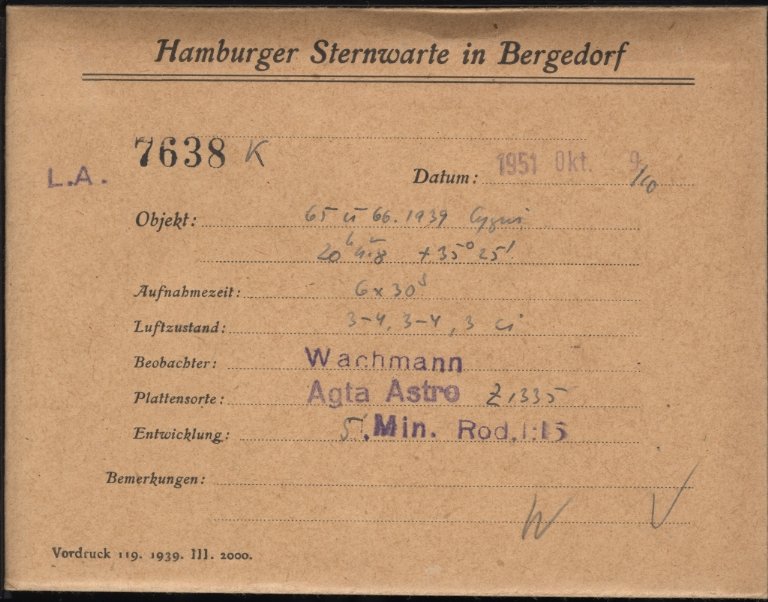 Hamburger Sternwarte in Bergedorf
7638 K
L.A.
Datum: 1951 Okt. 9/10
Objekt: 65 u 66.1939 Cygni
20h 4m.8 +35° 25'
Aufnahmezeit: 6 x 30s
Luftzustand: 3-4, 3-4, 3 ci
Beobachter: Wachmann
Plattensorte: Agfa Astro Z1335
Entwicklung: 5 Min. Rod. 1:15
Bemerkungen:
W
Vordruck 119. 1939. III. 2000.